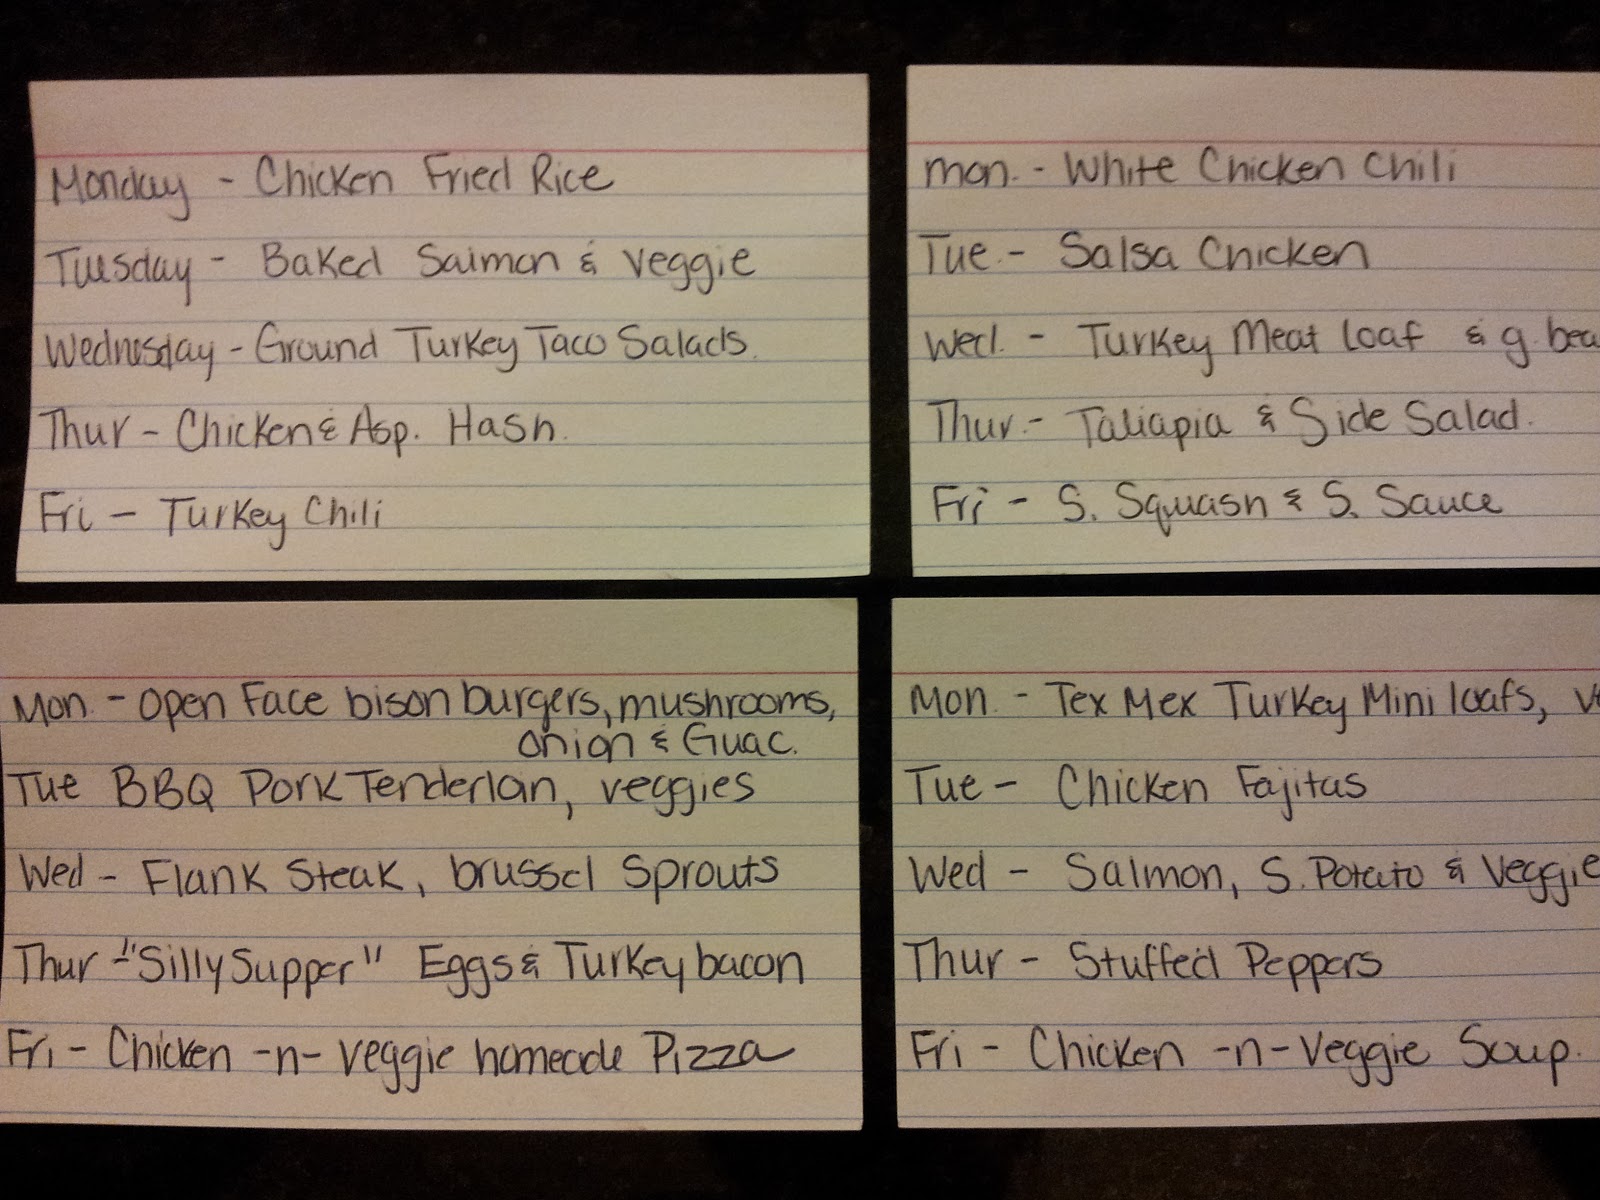 Monday - Chicken Fried Rice
Tuesday - Baked Salmon & veggie
Wednesday - Ground Turkey Taco Salads.
Thur - Chicken & Asp. Hash.
Fri - Turkey Chili
mon. - White Chicken Chili
Tue. - Salsa Chicken
Wed. - Turkey Meat loaf & g. bea
Thur. - Taliapia & Side Salad.
Fri - S. Squash & S. Sauce
Mon. - Open Face bison burgers, mushrooms,
onion & Guac.
Tue BBQ Pork Tenderloin, veggies
Wed - Flank Steak, brussel Sprouts
Thur - "Silly Supper" Eggs & Turkey bacon
Fri - Chicken -n- veggie homeade Pizza
Mon. - Tex Mex Turkey Mini loafs, v
Tue - Chicken Fajitas
Wed - Salmon, S. Potato & Veggie
Thur - Stuffed Peppers
Fri - Chicken -n- Veggie Soup.